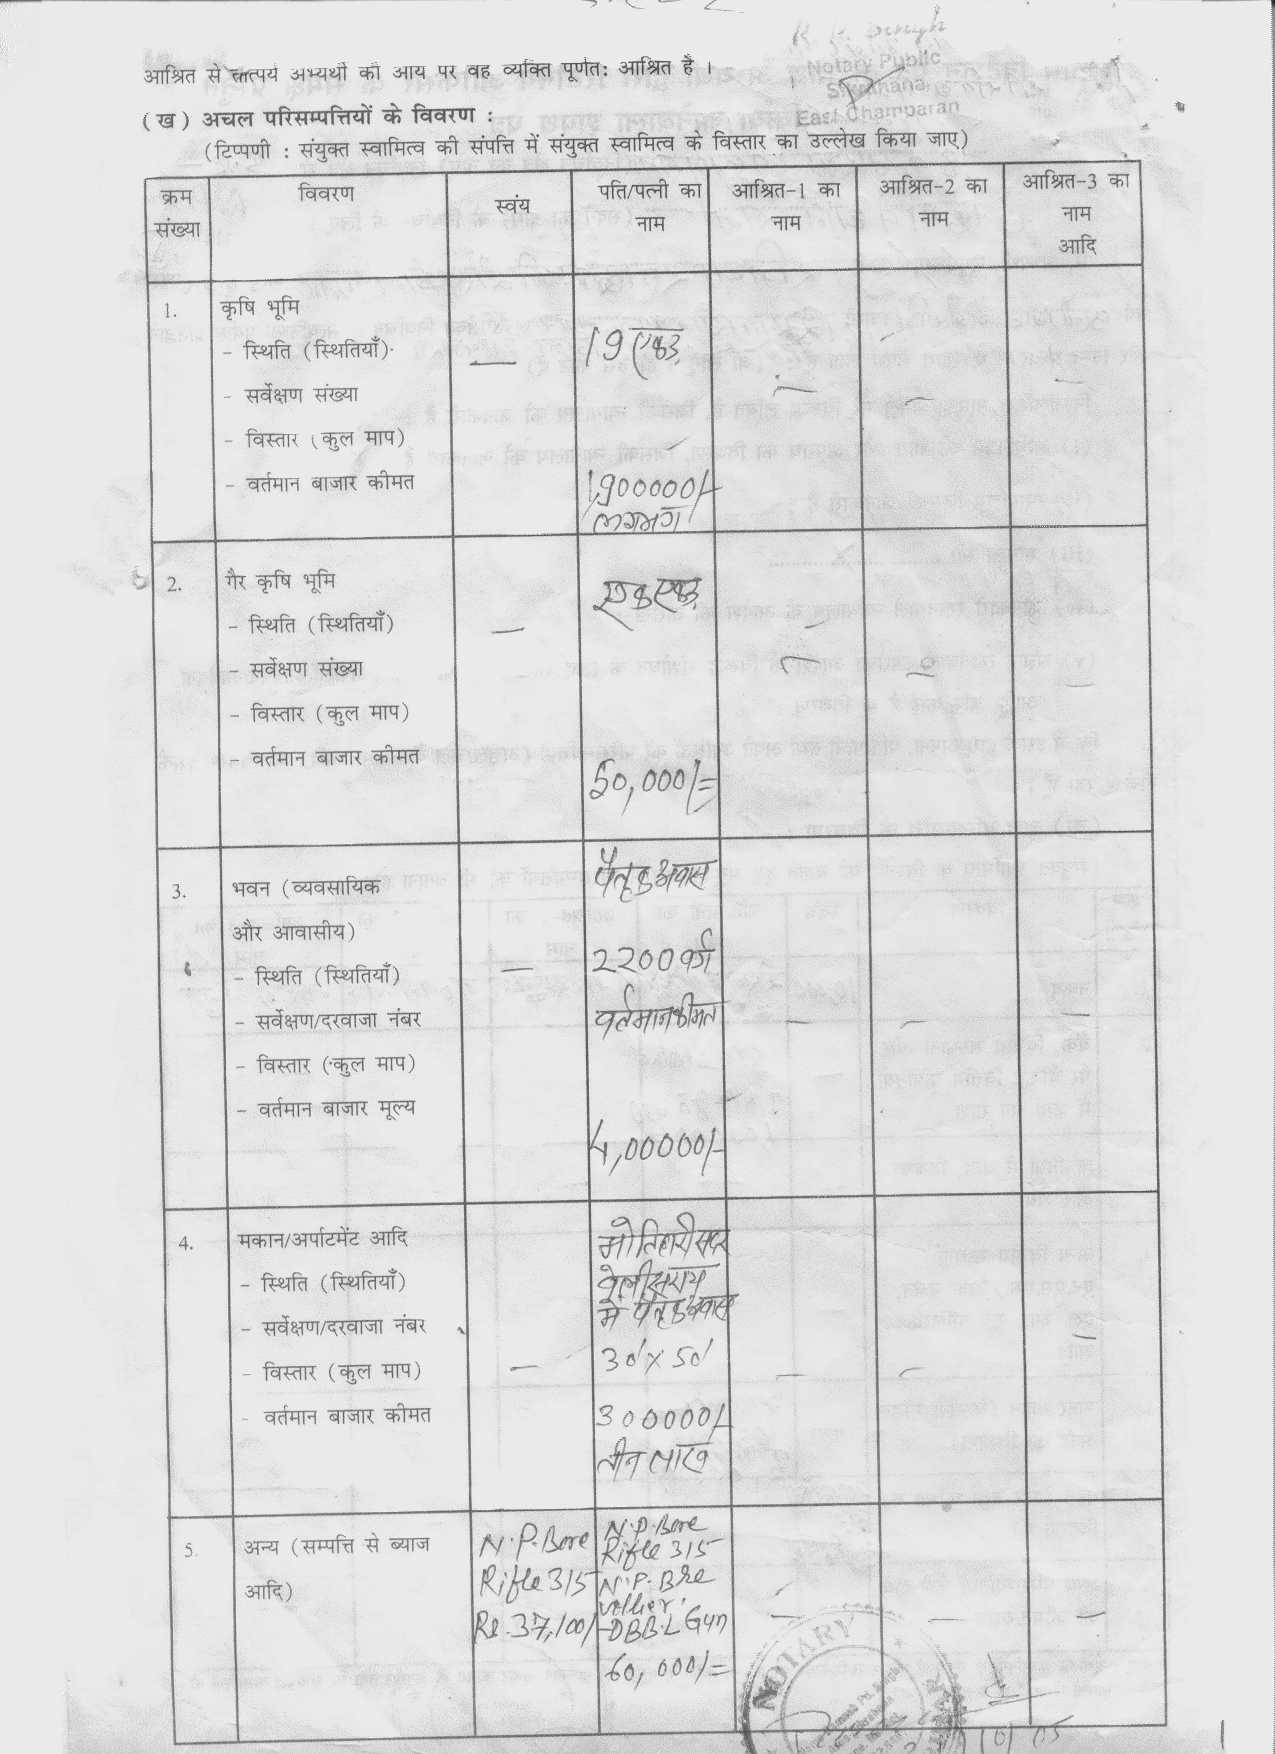 आश्रित से तात्पर्य अभ्यर्थी की आय पर वह व्यक्ति पूर्णत: आश्रित है ।
Notary Public
East Champaran
(ख) अचल परिसम्पत्तियों के विवरण :
(टिप्पणी : संयुक्त स्वामित्व की संपत्ति में संयुक्त स्वामित्व के विस्तार का उल्लेख किया जाए)
क्रम संख्या विवरण स्वंय पति/पत्नी का नाम आश्रित-1 का नाम आश्रित-2 का नाम आश्रित-3 का नाम आदि
1. कृषि भूमि
- स्थिति (स्थितियाँ) — 19 एकड़
- सर्वेक्षण संख्या
- विस्तार (कुल माप)
- वर्तमान बाजार कीमत 1,900000/-
लगभग
2. गैर कृषि भूमि एक एकड़
- स्थिति (स्थितियाँ) —
- सर्वेक्षण संख्या
- विस्तार (कुल माप)
- वर्तमान बाजार कीमत 50,000/=
3. भवन (व्यवसायिक पैतृक अवास
और आवासीय)
- स्थिति (स्थितियाँ) — 2200 वर्ग
- सर्वेक्षण/दरवाजा नंबर वर्तमान कीमत
- विस्तार (कुल माप)
- वर्तमान बाजार मूल्य 4,00000/-
4. मकान/अर्पाटमेंट आदि मोतिहारी सदर
- स्थिति (स्थितियाँ)
- सर्वेक्षण/दरवाजा नंबर में पैतृक अवास
- विस्तार (कुल माप) — 30' x 50'
- वर्तमान बाजार कीमत 300000/-
तीन लाख
5. अन्य (सम्पत्ति से ब्याज आदि)
N.P. Bore
Rifle 315
Rs. 37,100/-
N.P. Bore
Rifle 315
N.P. Bre
DBBL Gun
60,000/=
NOTARY